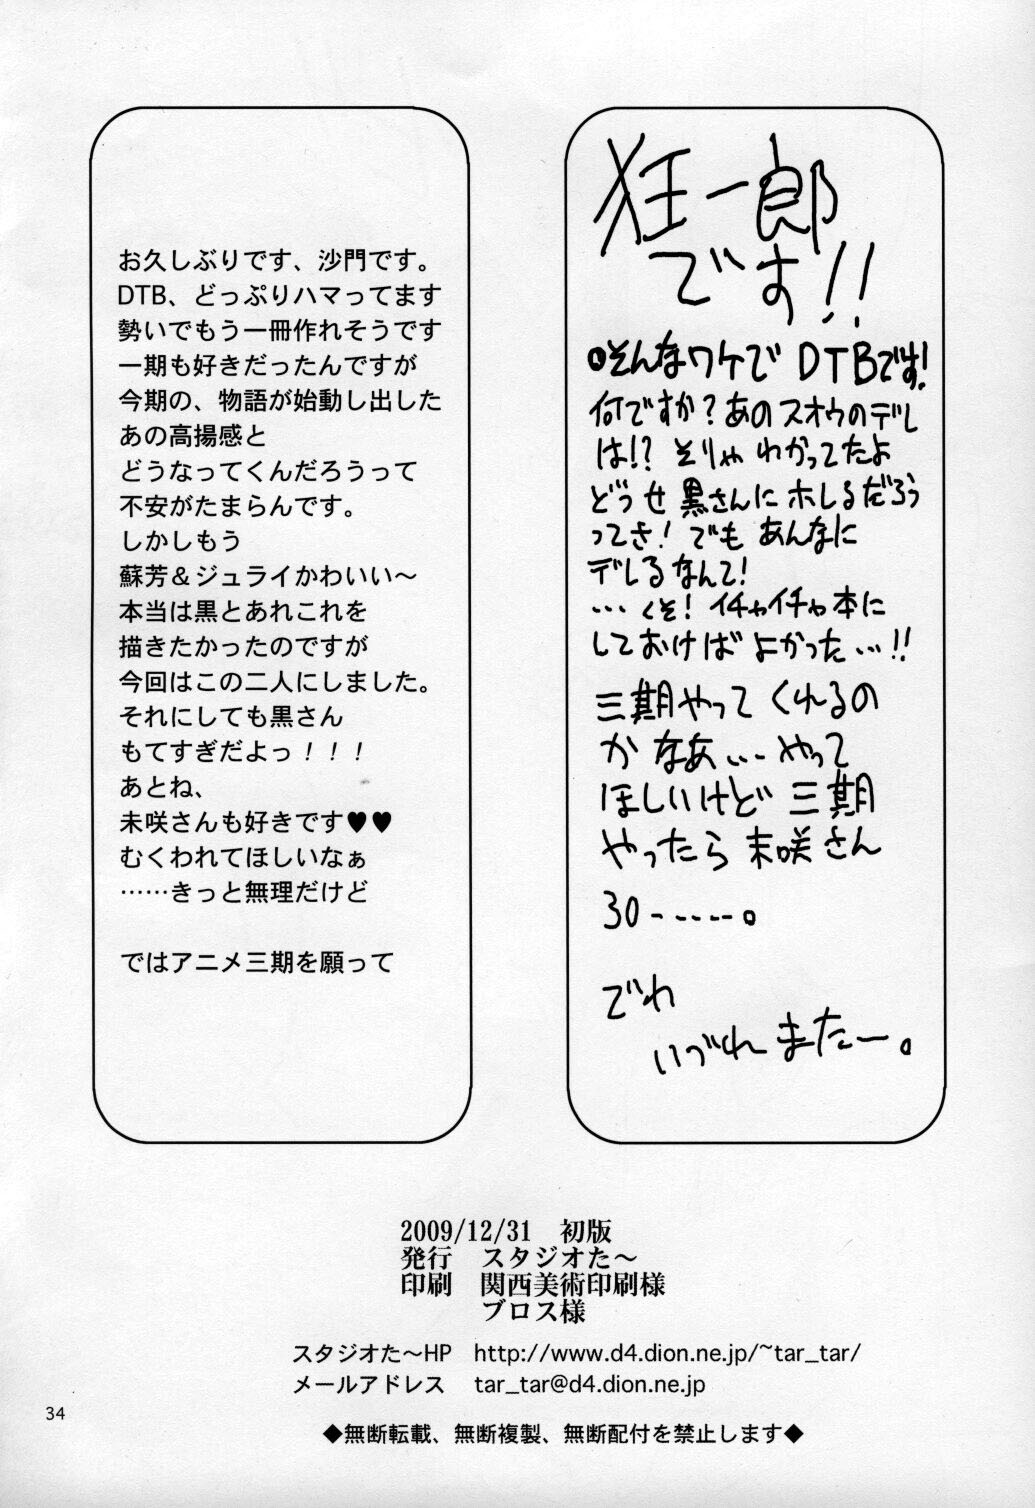 狂一郎
です!!
●そんなワケで DTBです!
何ですか?あのスオウのデレ
は!? そりゃ わかってたよ
どうせ 黒さんに ホレるだろう
ってさ! でも あんなに
デレるなんて!
…くそ! イチャイチャ本に
しておけば よかった…!!
三期やって くれるの
かなあ… やって
ほしいけど 三期
やったら 未咲さん
30-----。
でわ
いづれ またー。
お久しぶりです、沙門です。
DTB、どっぷりハマってます
勢いでもう一冊作れそうです
一期も好きだったんですが
今期の、物語が始動し出した
あの高揚感と
どうなってくんだろうって
不安がたまらんです。
しかしもう
蘇芳＆ジュライかわいい〜
本当は黒とあれこれを
描きたかったのですが
今回はこの二人にしました。
それにしても黒さん
もてすぎだよっ！！！
あとね、
未咲さんも好きです♥♥
むくわれてほしいなぁ
……きっと無理だけど
ではアニメ三期を願って
2009/12/31　初版
発行　スタジオた〜
印刷　関西美術印刷様
ブロス様
スタジオた〜HP　http://www.d4.dion.ne.jp/~tar_tar/
メールアドレス　tar_tar@d4.dion.ne.jp
34
◆無断転載、無断複製、無断配付を禁止します◆